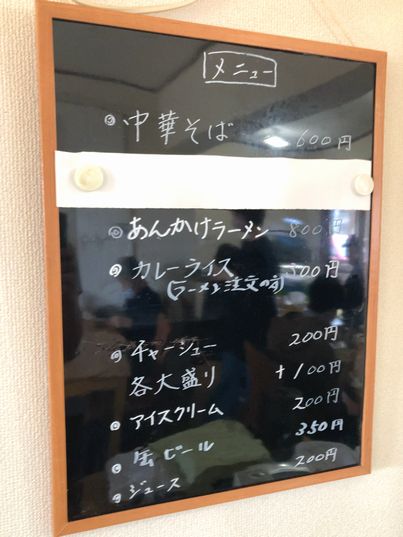 メニュー
◎中華そば 600円
◎あんかけラーメン 800円
◎カレーライス 300円
(ラーメン注文の方)
◎チャーシュー 200円
各大盛り +100円
◎アイスクリーム 200円
◎缶ビール 350円
◎ジュース 200円